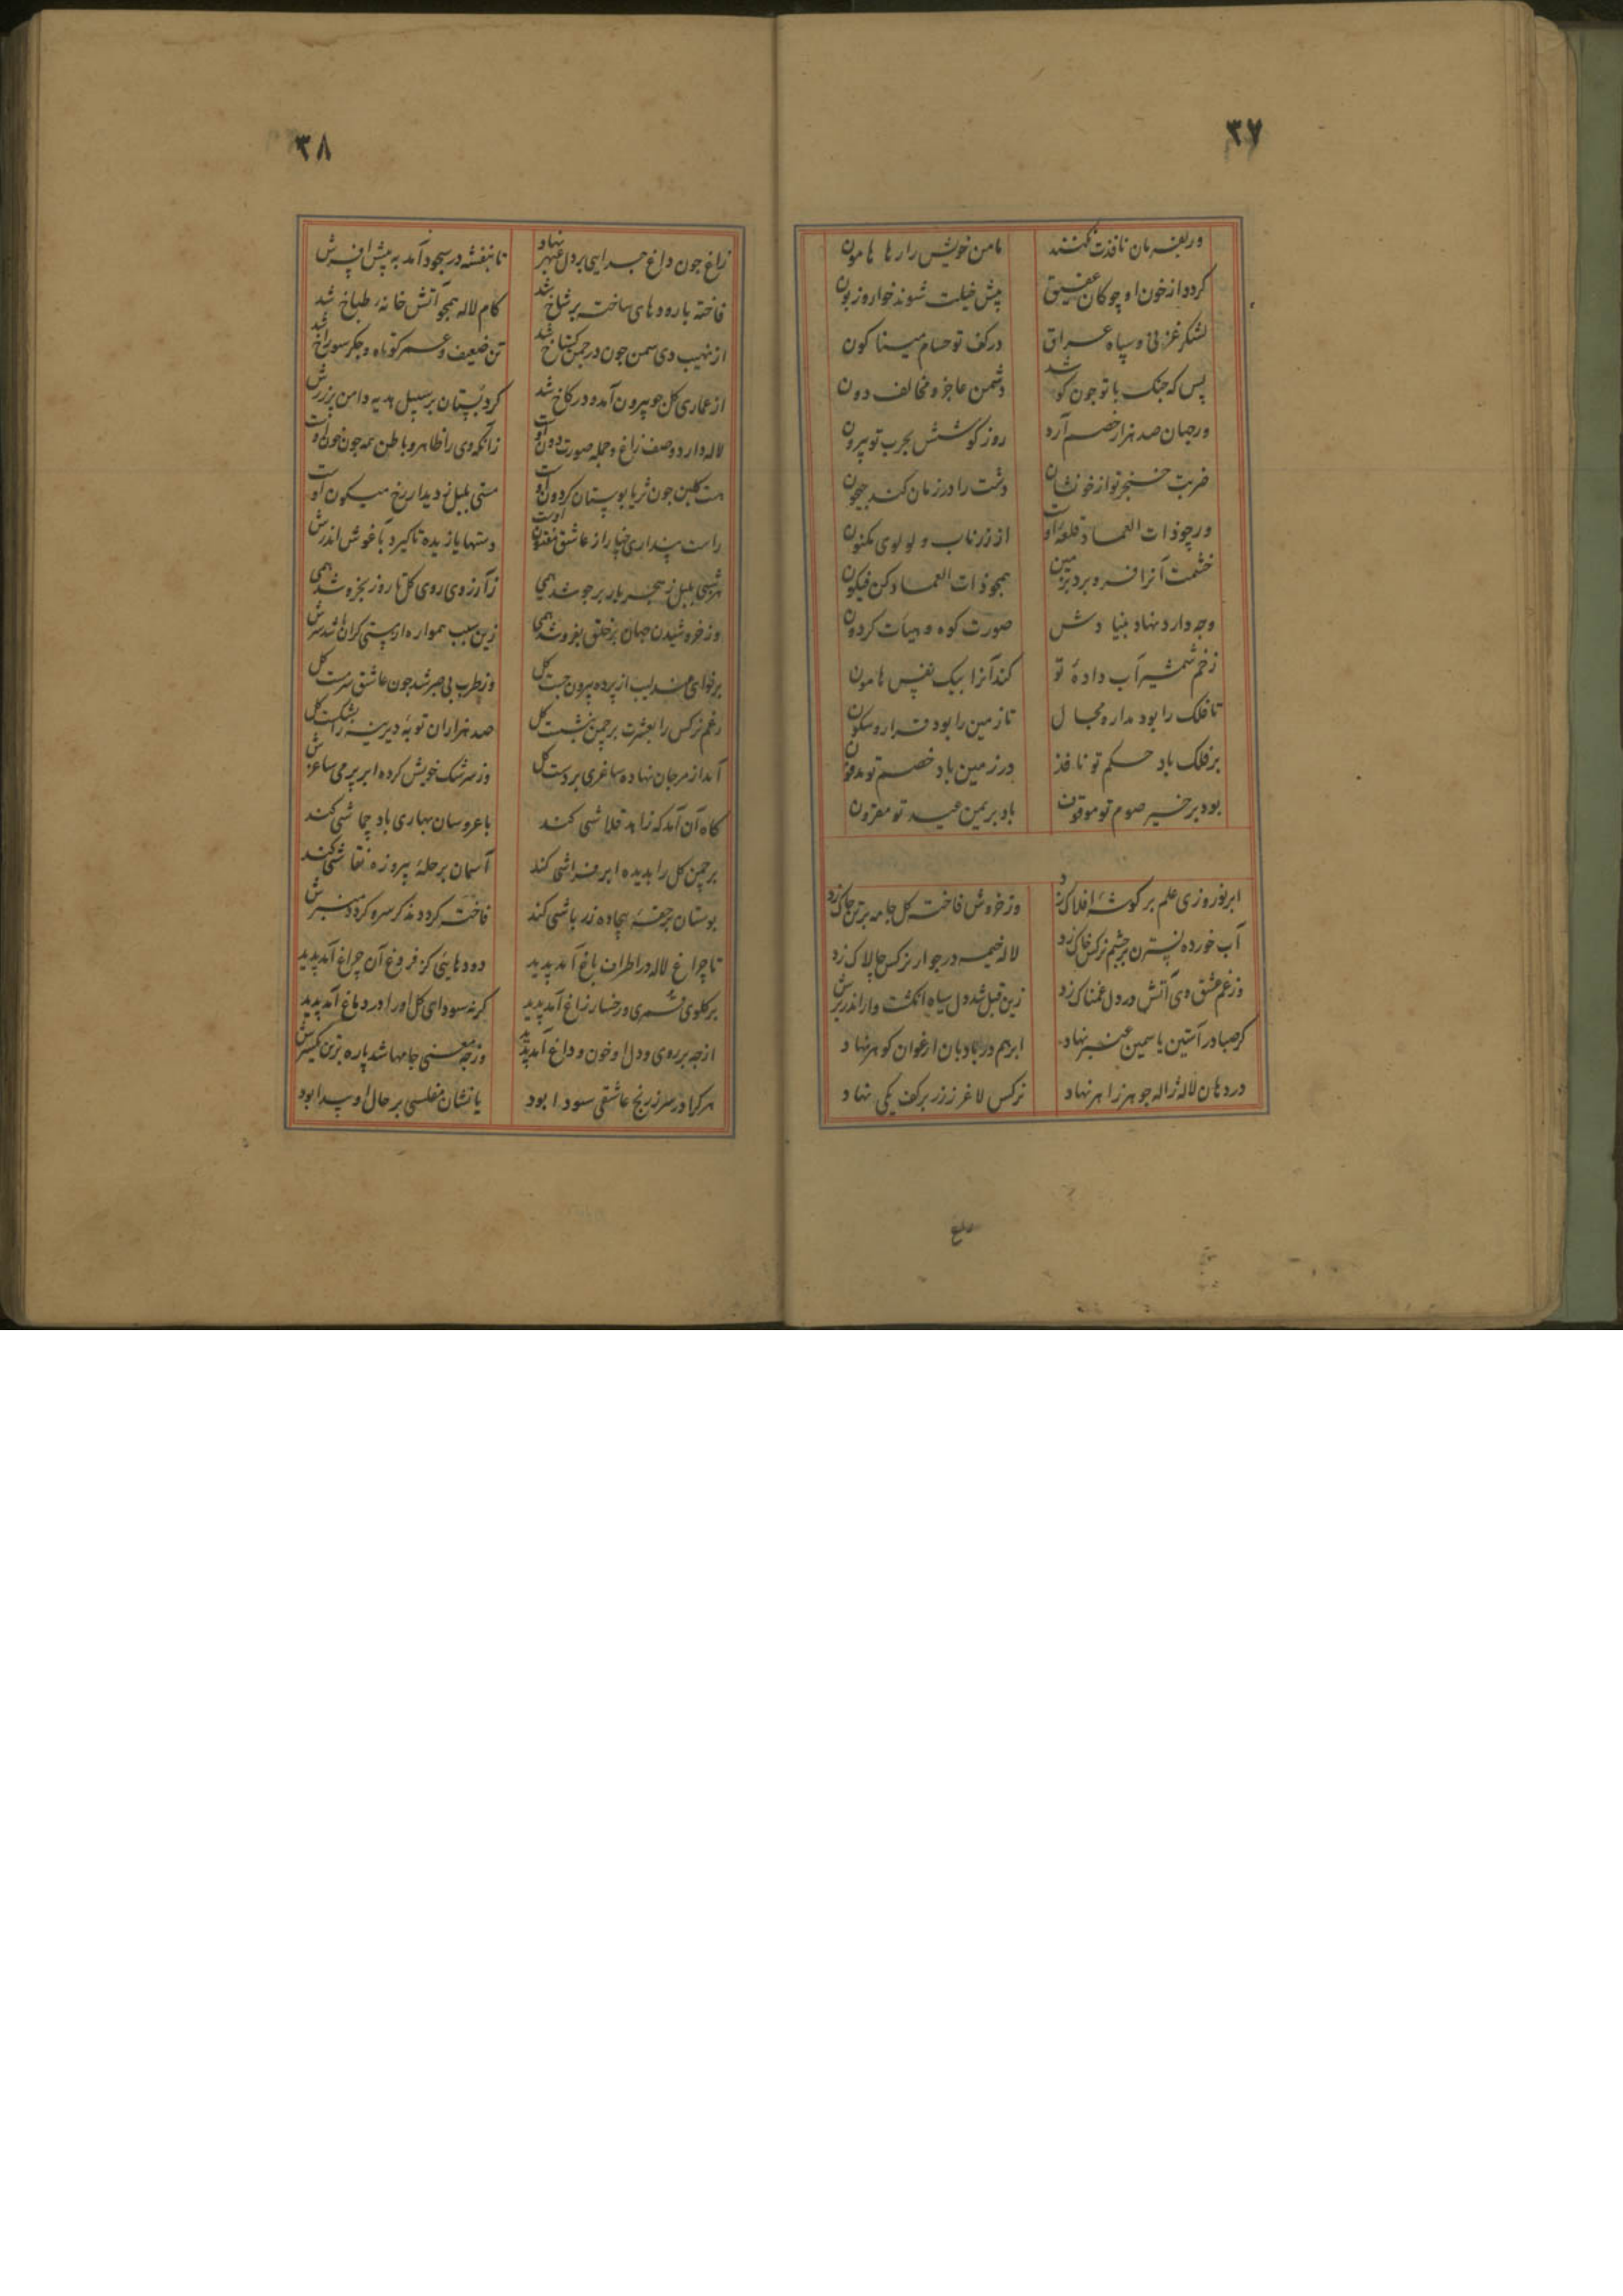 ٣٧
وربفرمان نافذت نکنند
مامن خویش را رها هامون
گردد از خون او چو کان عقیق
پیش خیلت شوند خوار و زبون
لشکر غزنی و سپاه عراق
در کف تو حسام مینا کون
پس که جنک با تو جون کوشد
دشمن عاجز و مخالف دون
ور جهان صد هزار خصم آرد
روز کوشش بحرب تو بیرون
ضربت خنجر تو از خونشان
دشت را در زمان کند جیحون
ور چو ذات العماد قلعه اوست
از زر ناب و لولوی مکنون
خشمت آنرا فرو برد بزمین
همجو ذات العماد کن فیکون
وجه دارد نهاد بنیادش
صورت کوه و هیات کردون
زخم شمشیر آب دادهٔ تو
کند آنرا بیک نفس هامون
تا فلک را بود مدار و مجال
تا زمین را بود قرار و سکون
بر فلک باد حکم تو نافذ
در زمین باد خصم تو مدفون
بود بر خیر صوم تو موقوف
باد بر یمن عید تو مقرون
ابر نوروزی علم بر گوشهٔ افلاک زد
وز خروش فاخته کل جامه بر تن چاک زد
آب خورده نسترن بر چشم نرکس خاک زد
لاله خیمه در جوار نرکس چالاک زد
وز غم عشق وی آتش در دل غمناک زد
زین قبل شد دل سیاه انکشت وار اندر برش
کر صبا در آستین یاسمین عنبر نهاد
ابر هم در بادبان ارغوان کوهر نهاد
در دهان لاله ژاله جوهر زاهر نهاد
نرکس لاغر ززر بر کف یکی نهاد
٣٨
زاغ جون داغ جدایی بر دل عبهر نهاد
تا بنفشه در سجود آمد به پیش افسرش
فاخته با رودهای ساخته بر شاخ شد
کام لاله همجو آتش خانهٔ طباخ شد
از نهیب دی سمن جون در جمن کستاخ شد
تن ضعیف و عمر کوتاه و جکر سوراخ شد
از عماری کل جو بیرون آمد و در کاخ شد
کرد بستان بر سبیل هدیه دامن پر زرش
لاله دارد وصف زاغ و جمله صورت دون اوست
زانکه وی را ظاهر و باطن همه جون خون اوست
هست کلبن جون ثریا بوستان کردون اوست
مستی بلبل ز دیدار رخ میکون اوست
راست پنداری چنار از عاشقی مفتون اوست
دستها یازیده تا کیرد بآغوش اندرش
هر شبی بلبل ز هجر یار بر جوشد همی
زآرزوی روی کل تا روز بخروشد همی
وز خروشیدن جهان بر خلق بفروشد همی
زین سبب همواره از مستی کران باشد سرش
بر نوای عندلیب از پرده بیرون جست کل
وز طرب بی صبر شد جون عاشق سرمست کل
رغم نرکس را بعشرت بر چمن بنشست کل
صد هزاران توبهٔ دیرینه را بشکست کل
آمد از مرجان نهاده ساغری بر دست کل
وز سرشک خویش کرده ابر پر می ساغرش
کاه آن آمد که زاهد قلاشی کند
با عروسان بهاری باد جماشی کند
بر چمن کل را بدیده ابر فراشی کند
آسمان بر حلهٔ پیروزه نقاشی کند
بوستان بر حقهٔ بیجاده زر باشی کند
فاخته کردد مذکر سرو کردد منبرش
تا چراغ لاله در اطراف باغ آمد پدید
دودهایی کز فروغ آن چراغ آمد پدید
بر کلوی قمری و رخسار زاغ آمد پدید
کرنه سودای کل او را در دماغ آمد پدید
از جه بر روی و دل او خون و داغ آمد پدید
وز جه معنی جامها شد پاره بر تن یکسرش
هر کرا در سر ز رنج عاشقی سودا بود
یا نشان مفلسی بر حال او پیدا بود